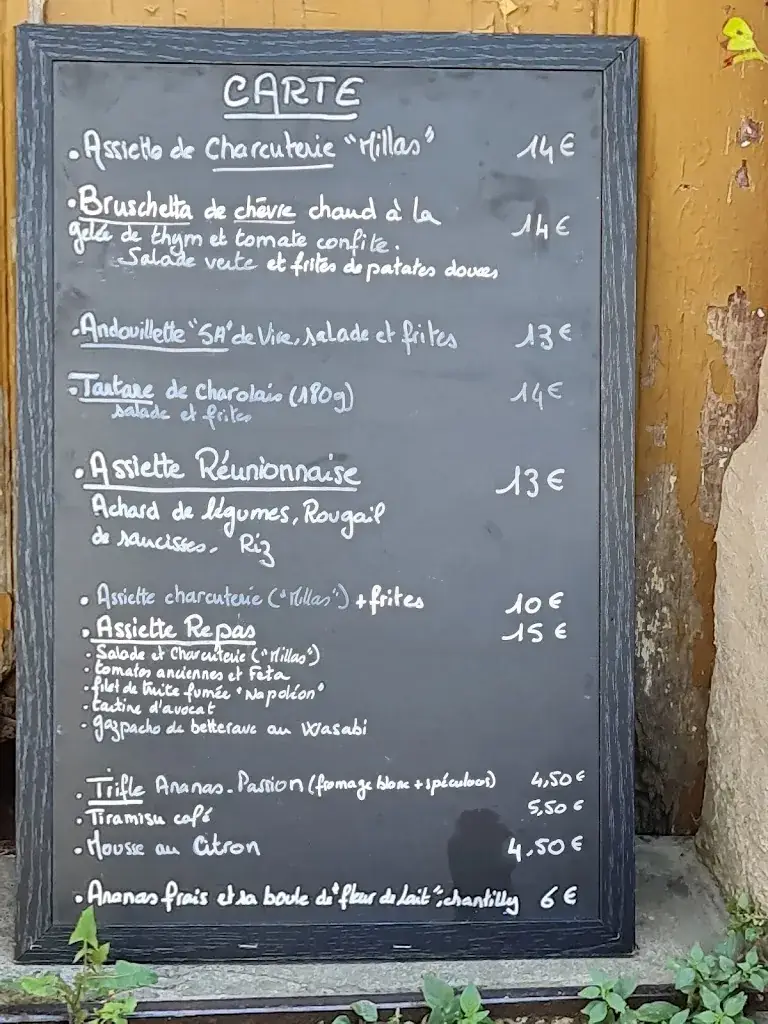 CARTE
• Assiette de Charcuterie "Millas" 14€
• Bruschetta de chèvre chaud à la
gelée de thym et tomate confite. 14€
Salade verte et frites de patates douces
• Andouillette "5A" de Vire, salade et frites 13€
• Tartare de Charolais (180g) 14€
salade et frites
• Assiette Réunionnaise 13€
Achard de légumes, Rougail
de saucisses. Riz
• Assiette charcuterie ("Millas") + frites 10€
• Assiette Repas 15€
• Salade et Charcuterie ("Millas")
• tomates anciennes et Feta
• filet de truite fumée "Napoléon"
• tartine d'avocat
• gazpacho de betterave au Wasabi
• Trifle Ananas-Passion (fromage blanc + spéculoos) 4,50€
• Tiramisu café 5,50€
• Mousse au Citron 4,50€
• Ananas frais et sa boule de "fleur de lait", chantilly 6€